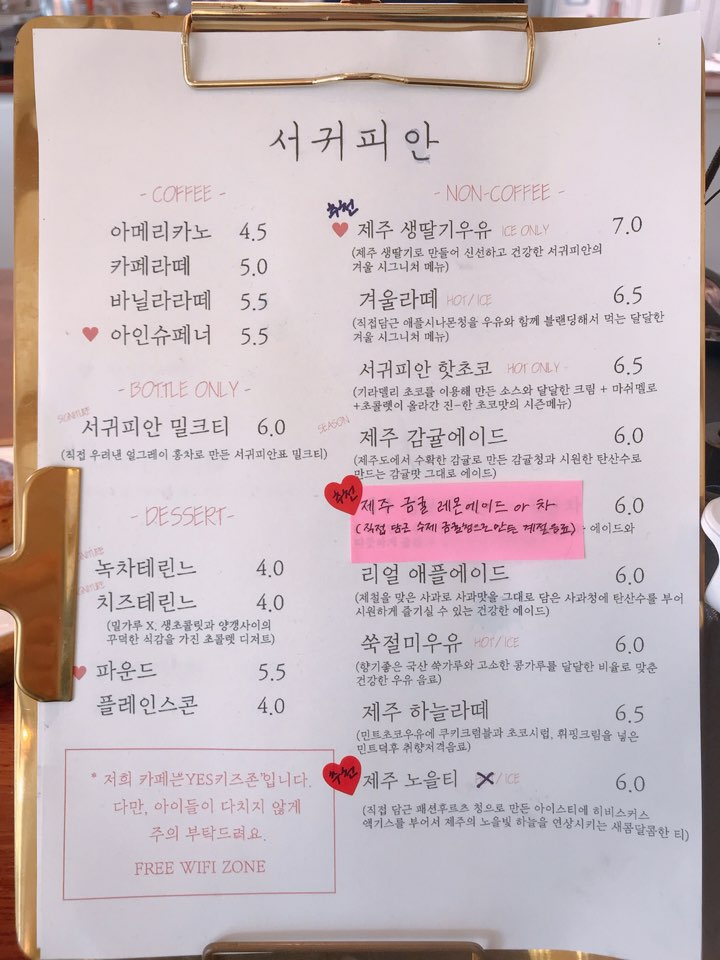 서귀피안
- COFFEE -
아메리카노 4.5
카페라떼 5.0
바닐라라떼 5.5
아인슈페너 5.5
- BOTTLE ONLY -
SIGNITURE
서귀피안 밀크티 6.0
(직접 우려낸 얼그레이 홍차로 만든 서귀피안표 밀크티)
- DESSERT -
녹차테린느 4.0
치즈테린느 4.0
(밀가루 X, 생초콜릿과 양갱사이의
꾸덕한 식감을 가진 초콜렛 디저트)
파운드 5.5
플레인스콘 4.0
* 저희 카페는"YES키즈존"입니다.
다만, 아이들이 다치지 않게
주의 부탁드려요.
FREE WIFI ZONE
- NON-COFFEE -
추천
제주 생딸기우유 ICE ONLY 7.0
(제주 생딸기로 만들어 신선하고 건강한 서귀피안의
겨울 시그니처 메뉴)
겨울라떼 HOT/ICE 6.5
(직접담근 애플시나몬청을 우유와 함께 블랜딩해서 먹는 달달한
겨울 시그니처 메뉴)
서귀피안 핫초코 HOT ONLY 6.5
(기라델리 초코를 이용해 만든 소스와 달달한 크림 + 마쉬멜로
+초콜렛이 올라간 진-한 초코맛의 시즌메뉴)
SEASON
제주 감귤에이드 6.0
(제주도에서 수확한 감귤로 만든 감귤청과 시원한 탄산수로
만드는 감귤맛 그대로 에이드)
추천
제주 금귤 레몬에이드 or 차 6.0
(직접 담근 수제 금귤청으로 만든 계절음료) 에이드와
리얼 애플에이드 6.0
(제철을 맞은 사과로 사과맛을 그대로 담은 사과청에 탄산수를 부어
시원하게 즐기실 수 있는 건강한 에이드)
쑥절미우유 HOT/ICE 6.0
(향기좋은 국산 쑥가루와 고소한 콩가루를 달달한 비율로 맞춘
건강한 우유 음료)
제주 하늘라떼 6.5
(민트초코우유에 쿠키크럼블과 초코시럽, 휘핑크림을 넣은
민트덕후 취향저격음료)
추천
제주 노을티 X / ICE 6.0
(직접 담근 패션후르츠 청으로 만든 아이스티에 히비스커스
액기스를 부어서 제주의 노을빛 하늘을 연상시키는 새콤달콤한 티)